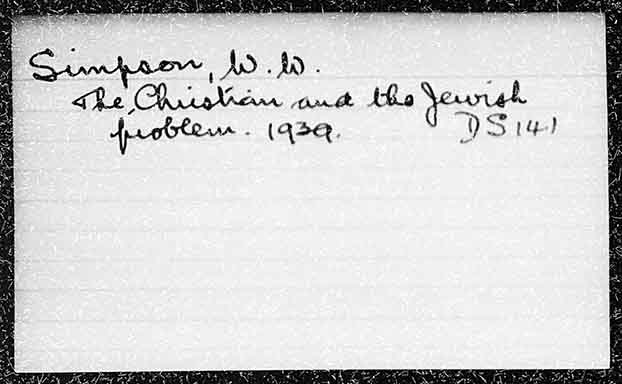 Simpson, W. W.
The Christian and the Jewish
problem. 1939. DS141